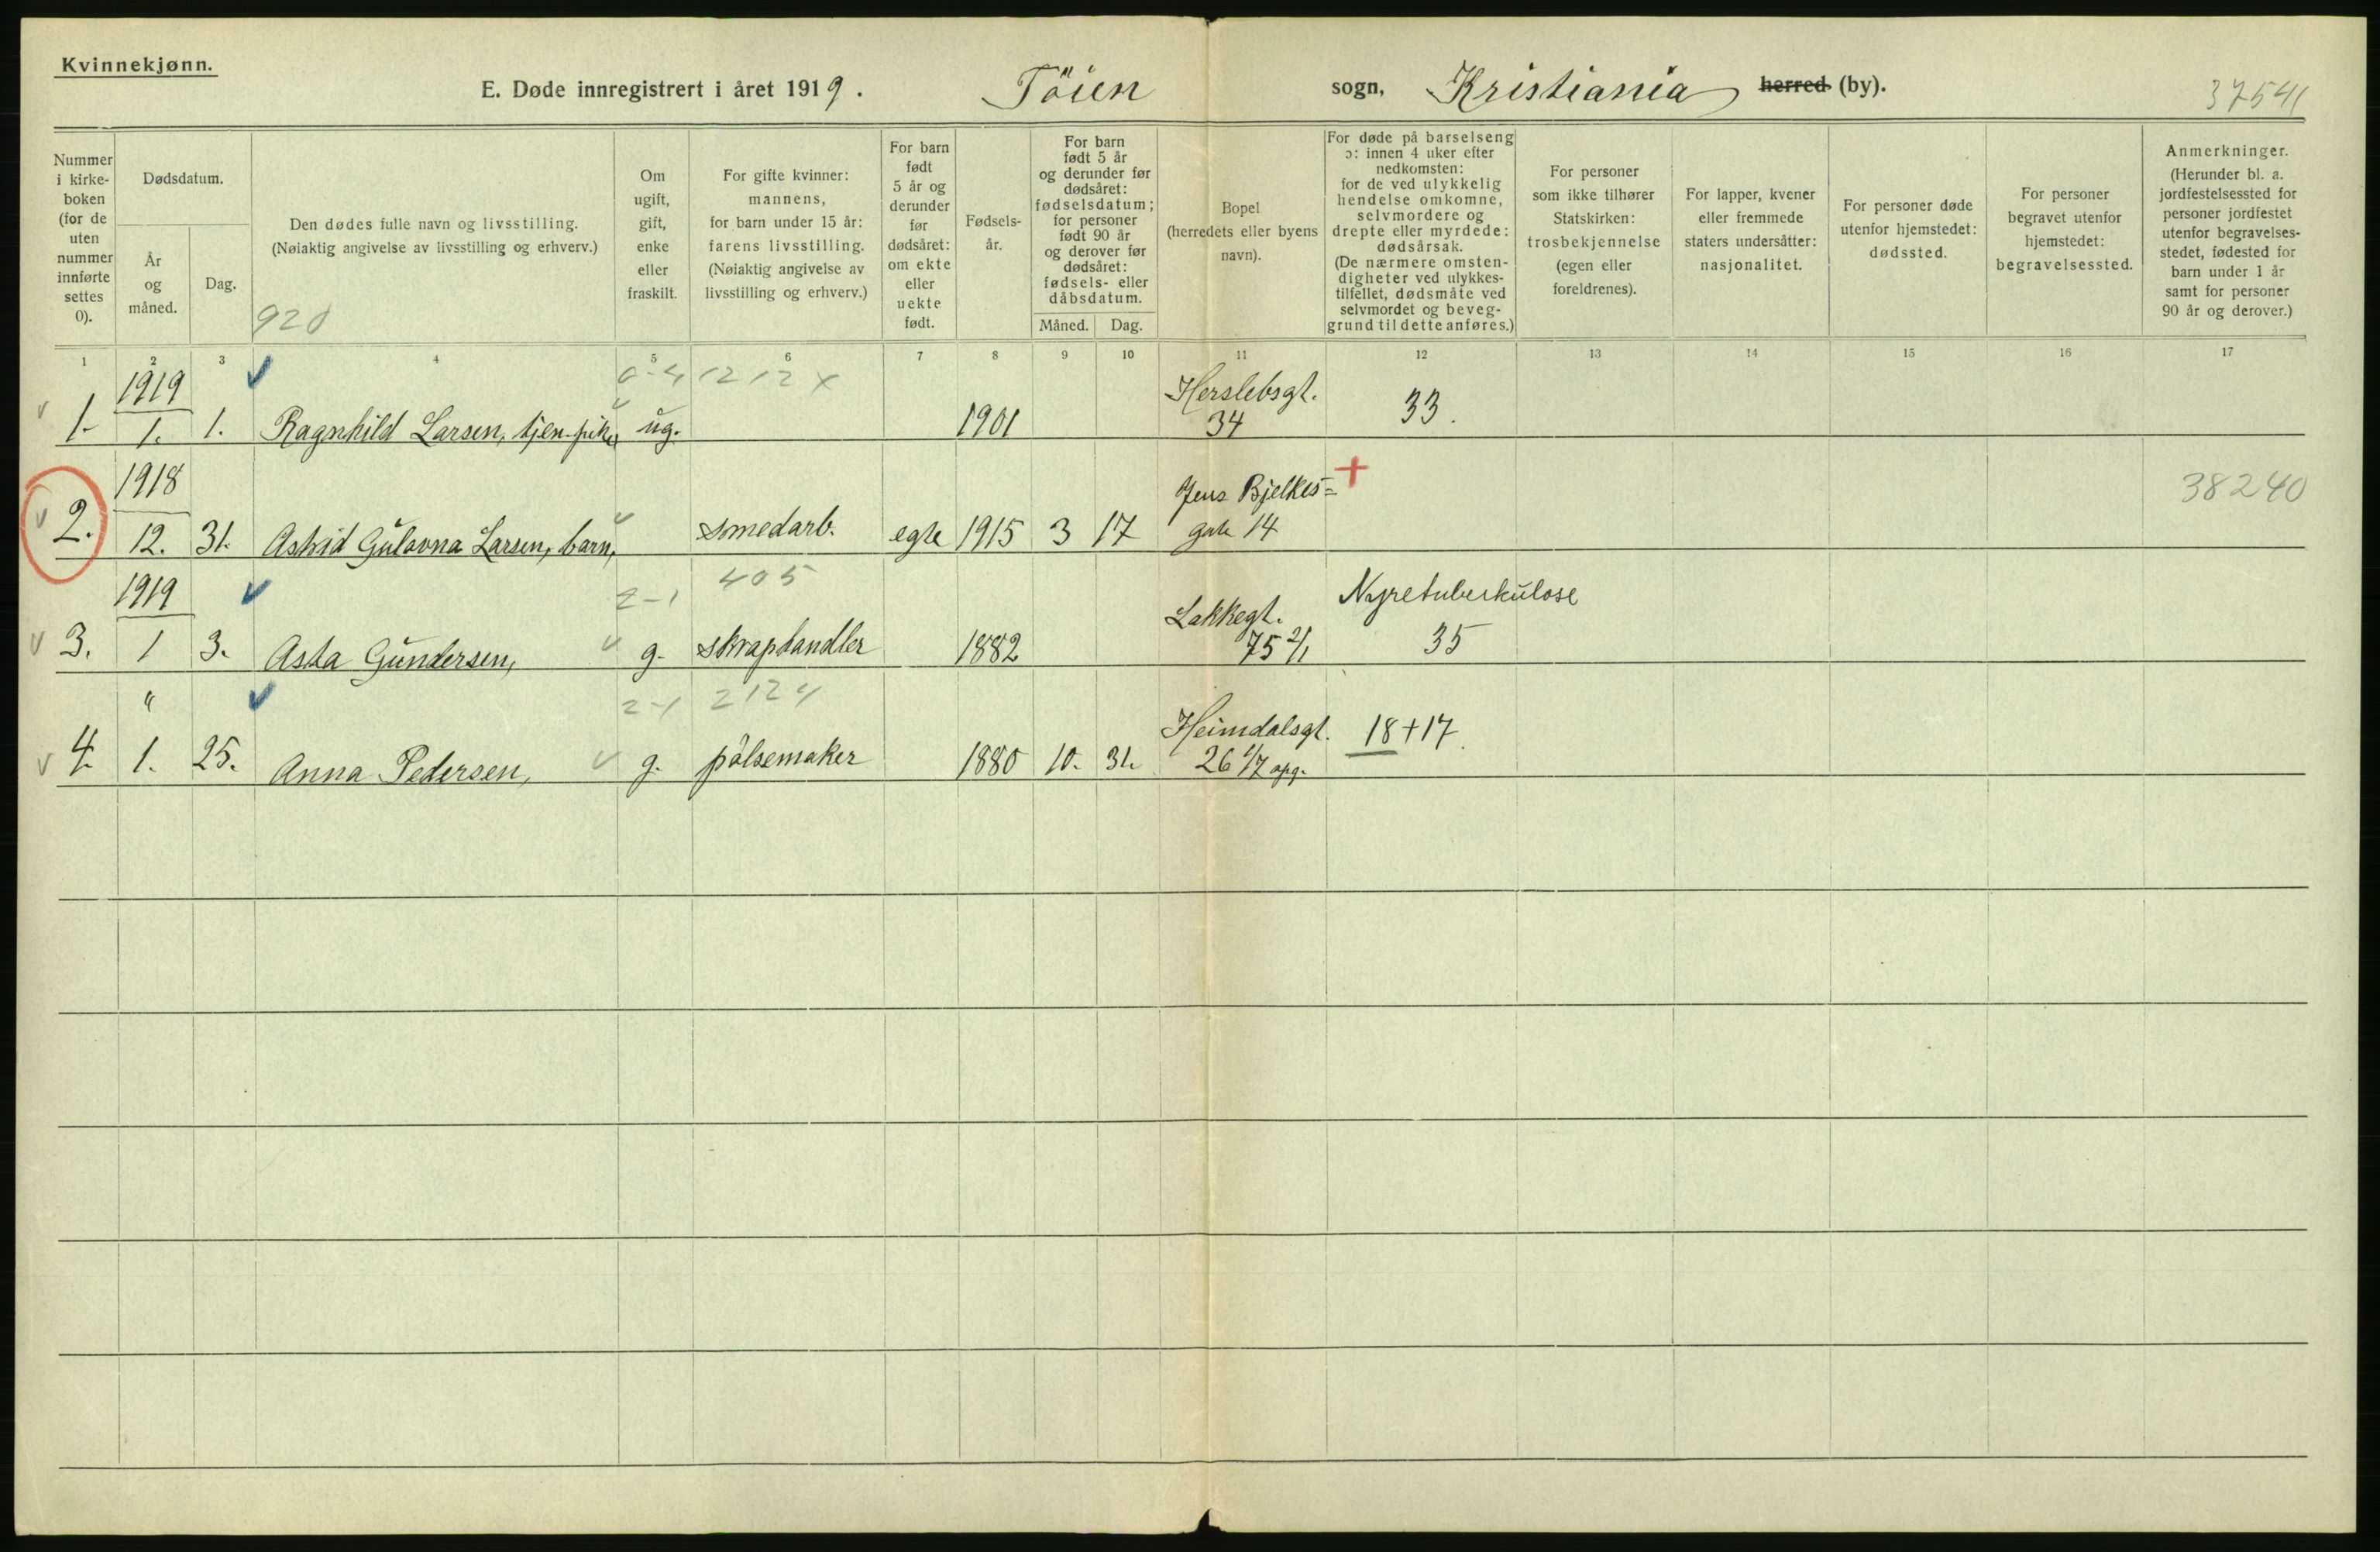 Kvinnekjønn.
E. Døde innregistrert i året 1919. Töien sogn, Kristiania herred (by). 37541
Nummer i kirke-boken (for de uten nummer innførte settes 0).
Dødsdatum.
År og måned.
Dag.
Den dødes fulle navn og livsstilling.
(Nøiaktig angivelse av livsstilling og erhverv.)
920
Om ugift, gift, enke eller fraskilt.
For gifte kvinner: mannens, for barn under 15 år: farens livsstilling.
(Nøiaktig angivelse av livsstilling og erhverv.)
For barn født 5 år og derunder før dødsåret: om ekte eller uekte født.
Fødsels-år.
For barn født 5 år og derunder før dødsåret: fødselsdatum; for personer født 90 år og derover før dødsåret: fødsels- eller dåbsdatum.
Måned. Dag.
Bopel (herredets eller byens navn).
For døde på barselseng ɔ: innen 4 uker efter nedkomsten: for de ved ulykkelig hendelse omkomne, selvmordere og drepte eller myrdede: dødsårsak.
(De nærmere omsten-digheter ved ulykkes-tilfellet, dødsmåte ved selvmordet og beveg-grund til dette anføres.)
For personer som ikke tilhører Statskirken: trosbekjennelse (egen eller foreldrenes).
For lapper, kvener eller fremmede staters undersåtter: nasjonalitet.
For personer døde utenfor hjemstedet: dødssted.
For personer begravet utenfor hjemstedet: begravelsessted.
Anmerkninger.
(Herunder bl. a. jordfestelsessted for personer jordfestet utenfor begravelses-stedet, fødested for barn under 1 år samt for personer 90 år og derover.)
1 2 3 4 5 6 7 8 9 10 11 12 13 14 15 16 17
1919 0-4 1212 x Herslebsgt.
1. 1. 1. Ragnhild Larsen, tjen.pike, ug. 1901 34 33.
1918 Jens Bjelkes= + 38240
2. 12. 31. Astrid Gulovna Larsen, barn, smedarb. egte 1915 3 17 gate 14
1919 2-1 405 Lakkegt. Nyretuberkulose
3. 1 3. Asta Gundersen, g. skraphandler 1882 75 2/1 35
" 2-1 2124 Heimdalsgt. 18+17.
4. 1. 25. Anna Pedersen, g. pølsemaker 1880 10. 31. 26 1/7 opg.